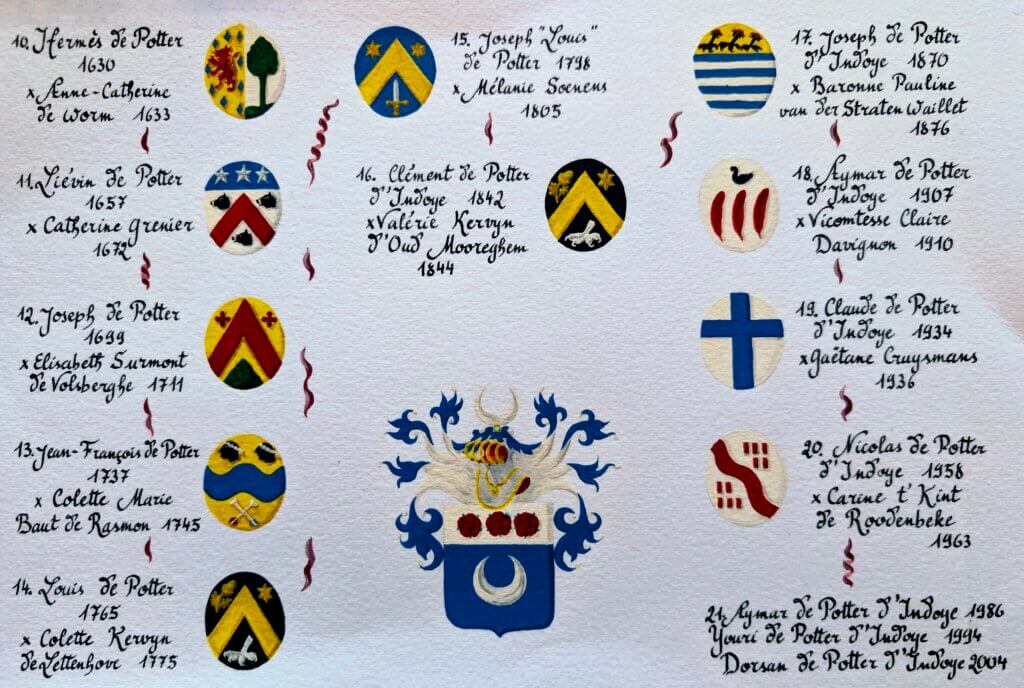 10. Hermès de Potter
1630
x Anne-Catherine
de Worm 1633
11. Liévin de Potter
1657
x Catherine Grenier
1672
12. Joseph de Potter
1699
x Elisabeth Surmont
de Volsberghe 1711
13. Jean-François de Potter
1737
x Colette Marie
Baut de Rasmon 1745
14. Louis de Potter
1765
x Colette Kervyn
de Lettenhove 1775
15. Joseph "Louis"
de Potter 1798
x Mélanie Soenens
1805
16. Clément de Potter
d'Indoye 1842
x Valérie Kervyn
d'Oud Mooreghem
1844
17. Joseph de Potter
d'Indoye 1870
x Baronne Pauline
van der Straten Waillet
1876
18. Aymar de Potter
d'Indoye 1907
x Vicomtesse Claire
Davignon 1910
19. Claude de Potter
d'Indoye 1934
x Gaëtane Cruysmans
1936
20. Nicolas de Potter
d'Indoye 1958
x Carine t'Kint
de Roodenbeke
1963
21. Aymar de Potter d'Indoye 1986
Youri de Potter d'Indoye 1994
Dorsan de Potter d'Indoye 2004